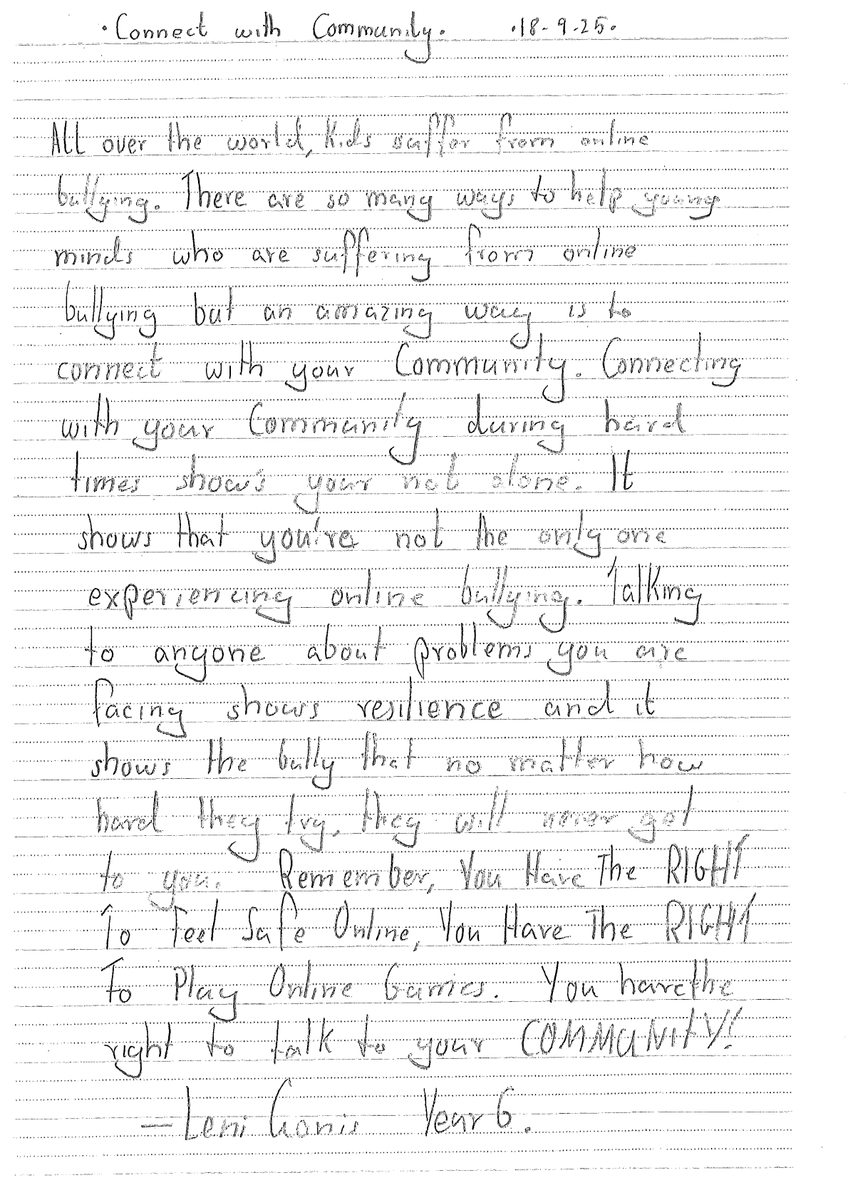 ·Connect with Community.   ·18-9-25·
All over the world, Kids suffer from online
bullying. There are so many ways to help young
minds who are suffering from online
bullying but an amazing way is to
connect with your Community. Connecting
with your Community during hard
times shows your not alone. It
shows that you're not the only one
experiencing online bullying. Talking
to anyone about problems you are
facing shows resilience and it
shows the bully that no matter how
hard they try, they will never get
to you. Remember, You Have The RIGHT
To Feel Safe Online, You Have The RIGHT
To Play Online Games. You have the
right to talk to your COMMUNITY!
— Leni Gonis Year 6.